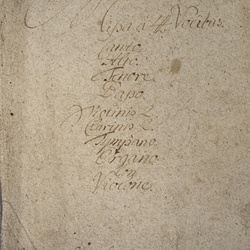 Missa à 4 Vocibus.
Canto
Alto
Tenore
Basso
Violinis 2
Clarinis 2
Tympano
Organo
Con
Violone